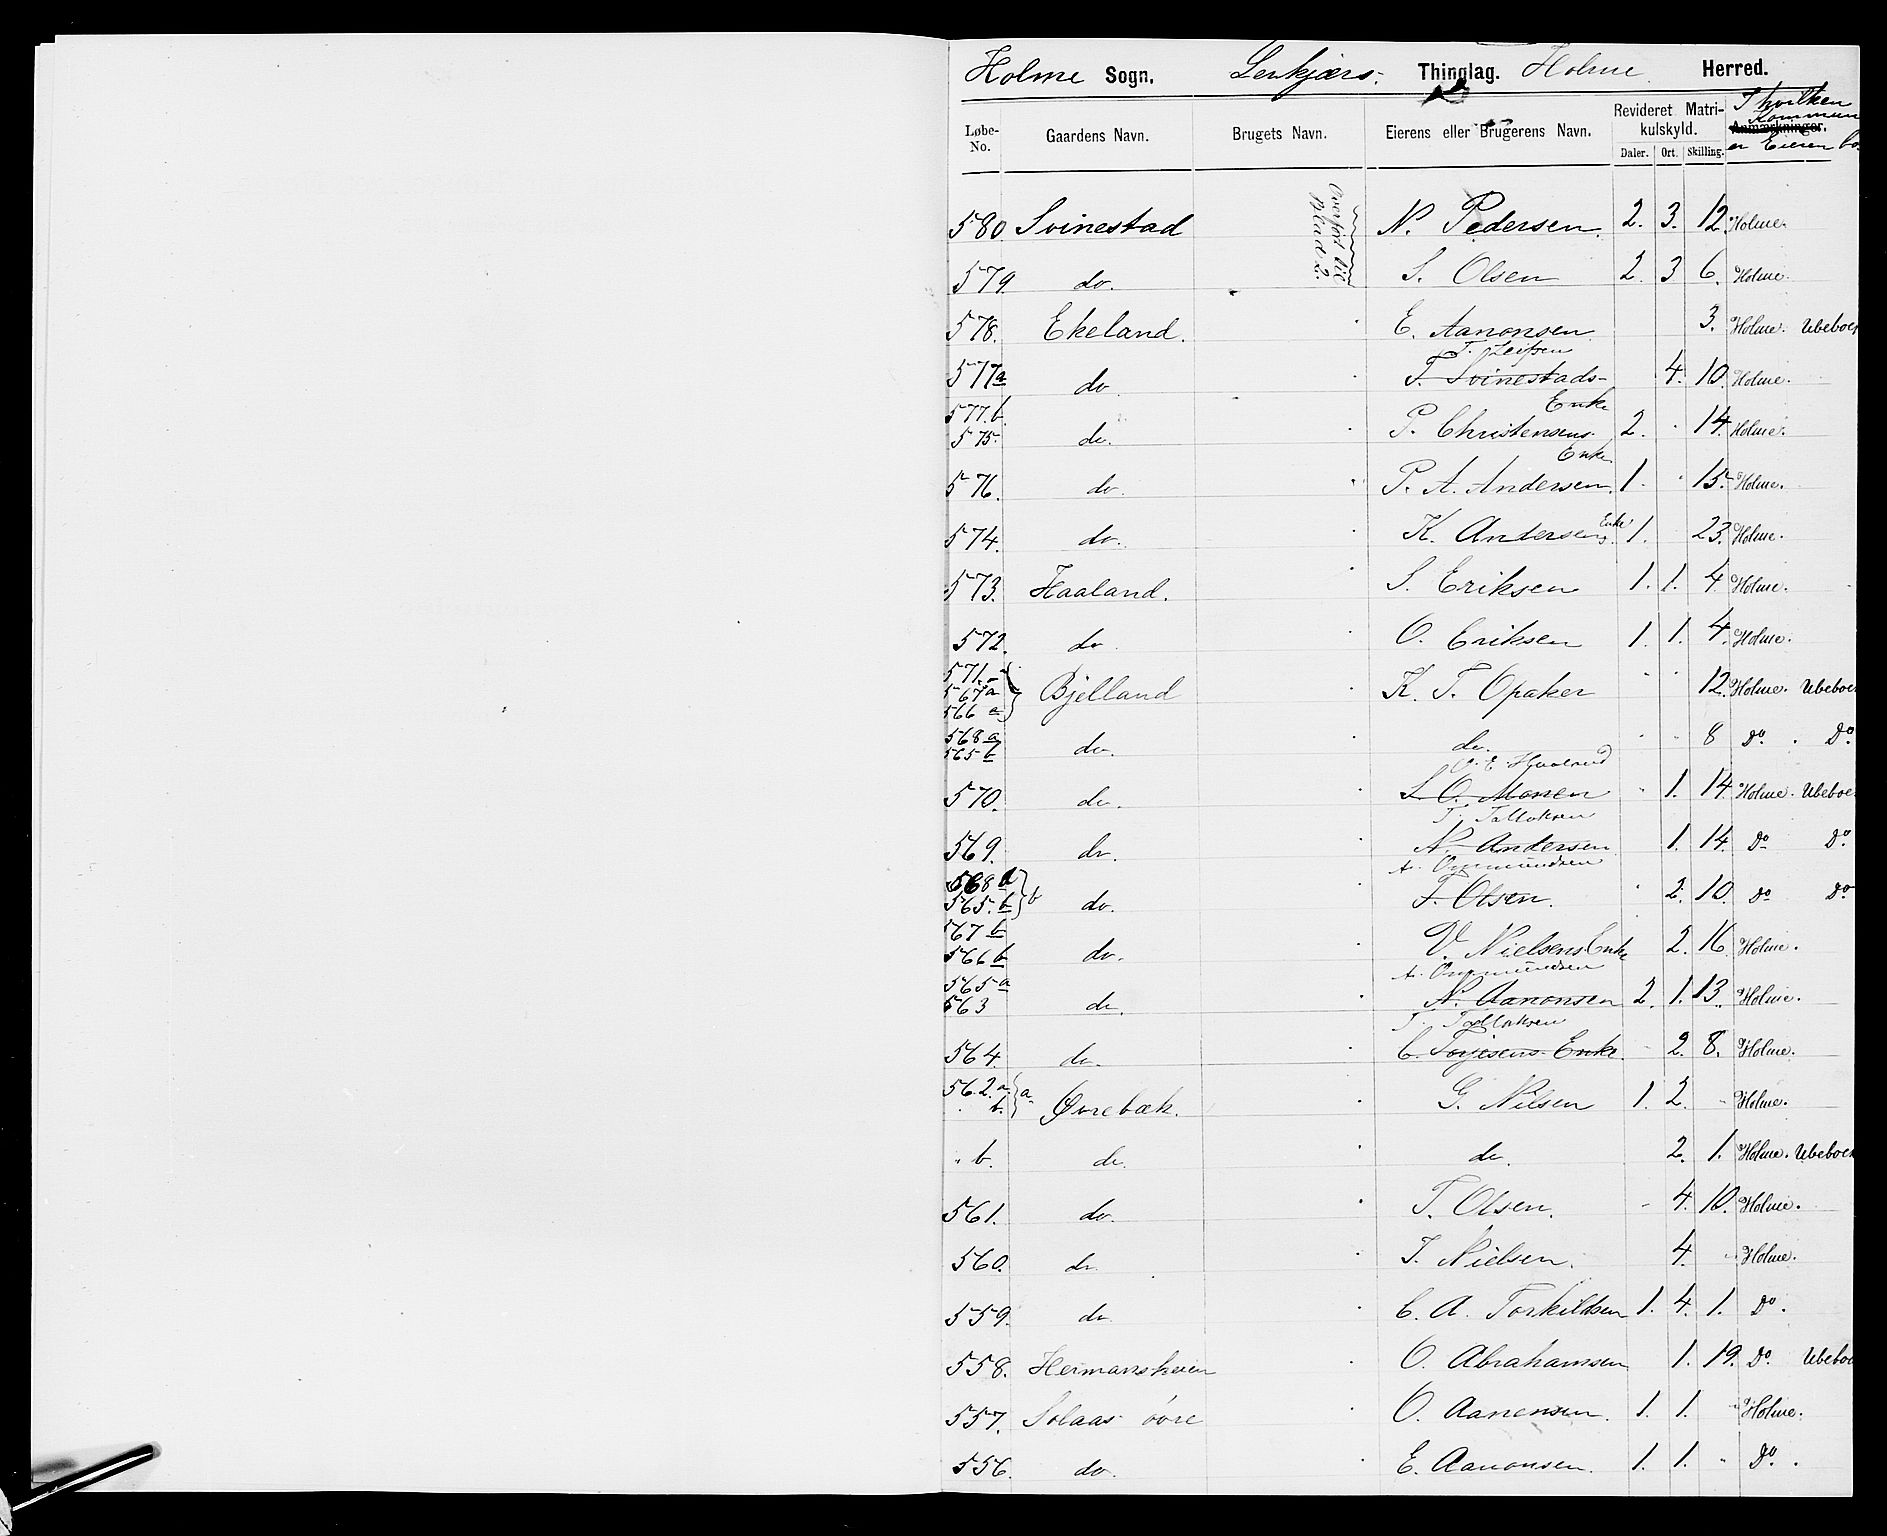 Holme Sogn. Lenkjærs. Thinglag. Holme Herred.
Løbe-No. Gaardens Navn. Brugets Navn. Eierens eller Brugerens Navn. Revideret Matrikulskyld. Daler. Ort. Skilling. Anmærkninger. I hvilken Kommune er Eieren bo
Overført til Blad 2.
580 Svinestad N. Pedersen. 2. 3. 12 Holme.
579. do. S. Olsen 2. 3 6. Holme.
578. Ekeland. E. Aanonsen 3. Holme. Ubeboet
T. Leifsen
577a do T. Svinestads Enke 4. 10. Holme.
577.b.
575. do. P. Christensens Enke 2. 14. Holme.
576. do. P. A. Andersen. 1. 15. Holme.
574. do. K. Andersens Enke 1. 23. Holme.
573. Haaland. S. Eriksen 1. 1. 4 Holme.
572. do. O. Eriksen 1. 1. 4. Holme.
571.
567a
566 a Bjelland K. T. Opaker 12. Holme. Ubeboet
568a
565b do. do. 8 Do. Do.
O. E. Haaland
570. do. S. O. Monen 1. 14 Holme. Ubeboet
T. Tallaksen
569. do. N. Andersen 1. 14. Do Do.
A. Ommundsen
568 d
565.b b do. T. Olsen. 2. 10. Do Do
567 b
566 b do. V. Nielsens Enke 2. 16. Holme.
A. Ommundsen
565a
563 do. N. Aanonsen 2. 1. 13. Holme.
T. Tallaksen
564. do. C. Torjesens Enke. 2. 8. Holme.
562.a.
b. a. Øvrebæk. G. Nilsen 1. 2. Holme.
" b. do. do. 2. 1. Holme. Ubeboet
561. do. T. Olsen. 4. 10. Holme.
560. do. T. Nielsen. 4. Holme.
559. do. C. A. Torkildsen 1. 4. 1. Do.
558. Hermansheien O. Abrahamsen 1. 19. Do. Ubeboet
557. Solaas øvre O. Aanensen. 1. 1. Holme.
556. do. E. Aanonsen. 1. 1. " Do.